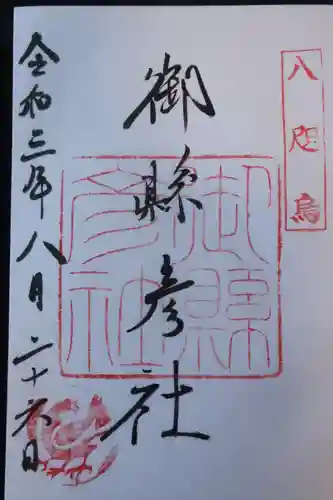 八咫烏
御縣彦社
令和三年八月二十六日
御縣
彦社